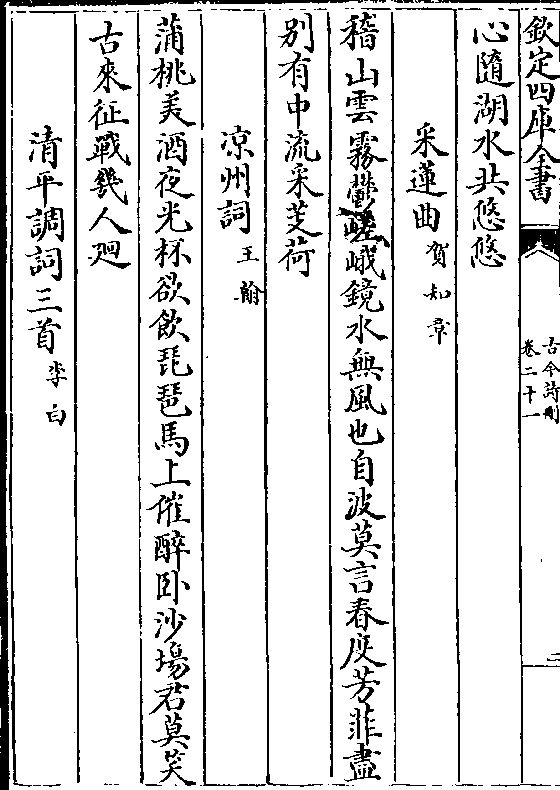 欽定四庫全書
古今詩刪
卷二十一
二
心隨湖水共悠悠
采蓮曲 賀知章
稽山雲霧鬱嵯峨鏡水無風也自波莫言春度芳菲盡
別有中流采芰荷
涼州詞 王翰
蒲桃美酒夜光杯欲飲琵琶馬上催醉卧沙場君莫笑
古來征戰幾人廻
清平調詞三首 李白